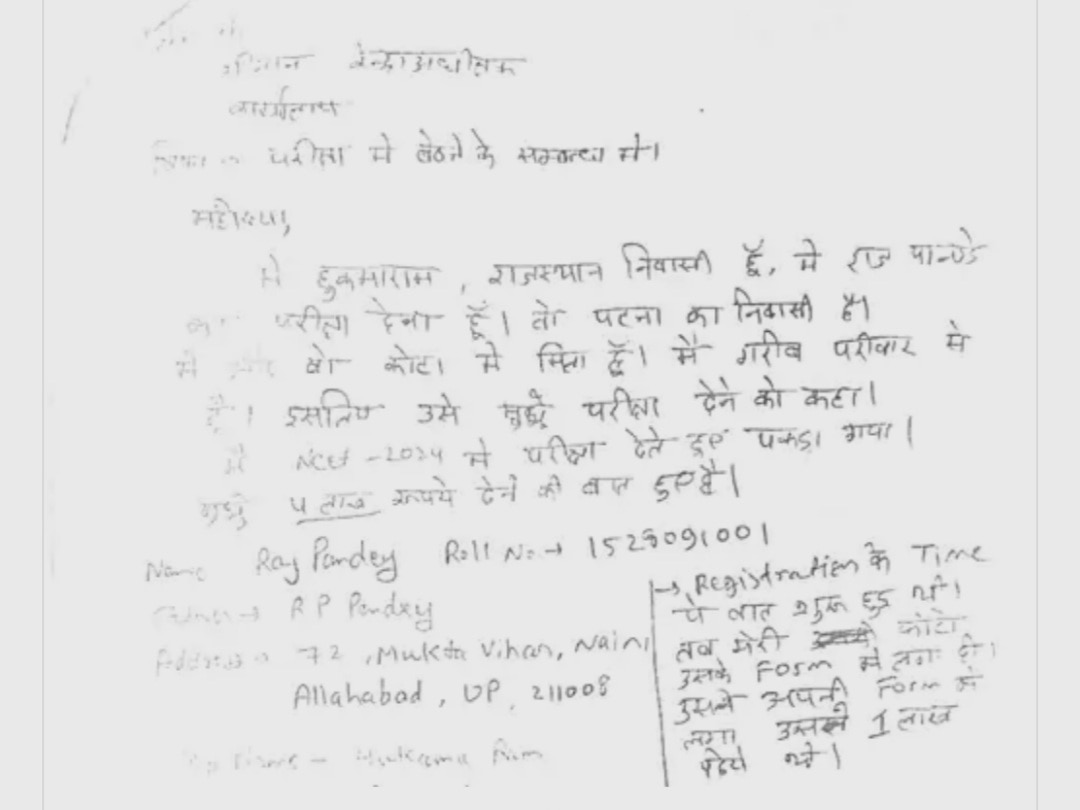 केन्द्राअधीक्षक
कार्यालय
परीक्षा मे बेठने के सम्बन्ध मे।
महोदया,
मे हुकमाराम, राजस्थान निवासी हूँ, मे राज पाण्डे
परीक्षा देना हूँ। वो पटना का निवासी है।
मे वो कोटा मे मिला हूँ। मै गरीब परीवार से
है। इसलिए उसे मुझे परीक्षा देने को कहा।
मै Neet-2024 मे परीक्षा देते हुए पकड़ा गया।
मुझे 4 लाख रूपये देने की बात हुई है।
Name Raj Pandey Roll No. → 1529091001
R P Pandey
Address 72, Mukta Vihar, Naini
Allahabad, UP, 211008
Hukama Ram
→ Registration के Time
पे बात शुरू हुई थी।
तब मेरी फोटो
उसके Form मे लगा दी।
उसने अपनी Form मे
लगा उसने 1 लाख
थे।